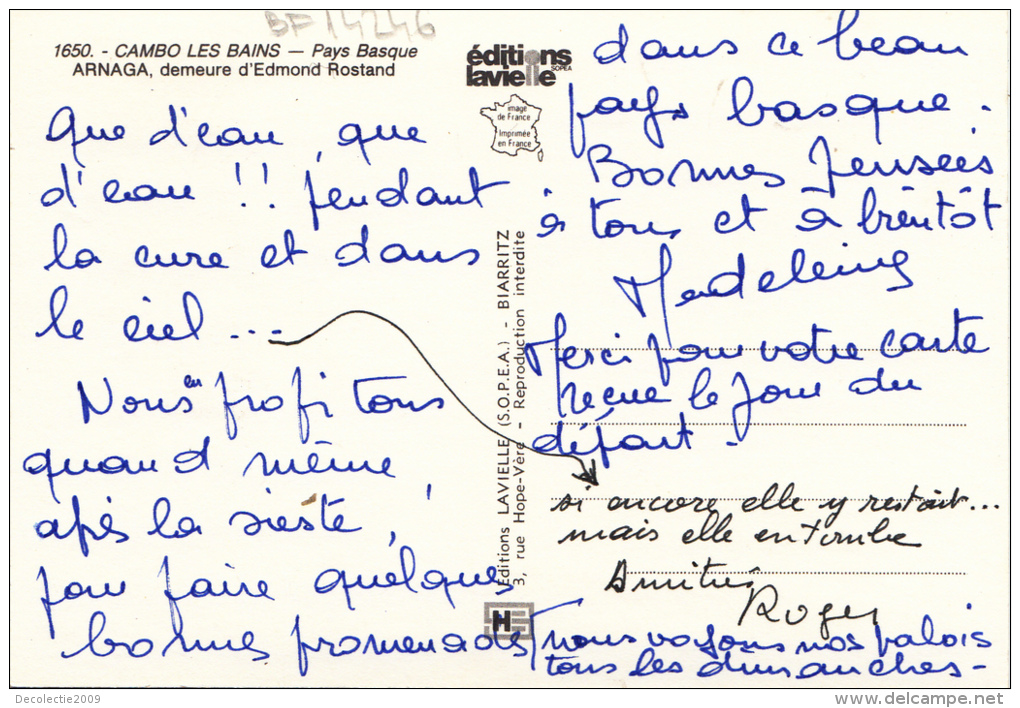 BF 14246
1650. - CAMBO LES BAINS — Pays Basque
ARNAGA, demeure d'Edmond Rostand
éditions
lavielle
SOPEA
image
de France
Imprimée
en France
Que d'eau, que
d'eau !! pendant
la cure et dans
le ciel ...
Nous en profitons
quand même,
après la sieste,
pour faire quelques
bonnes promenades
dans ce beau
pays basque.
Bonnes pensées
à tous et à bientôt
Madeleine
Merci pour votre carte
reçue le jour du
départ.
si encore elle y restait...
mais elle en tombe
Amitiés
Roger
nous voyons nos palois
tous les dimanches -
Éditions LAVIELLE (S.O.P.E.A.) - BIARRITZ
3, rue Hope-Vère - Reproduction interdite
Decolectie2009
www.delcampe.net